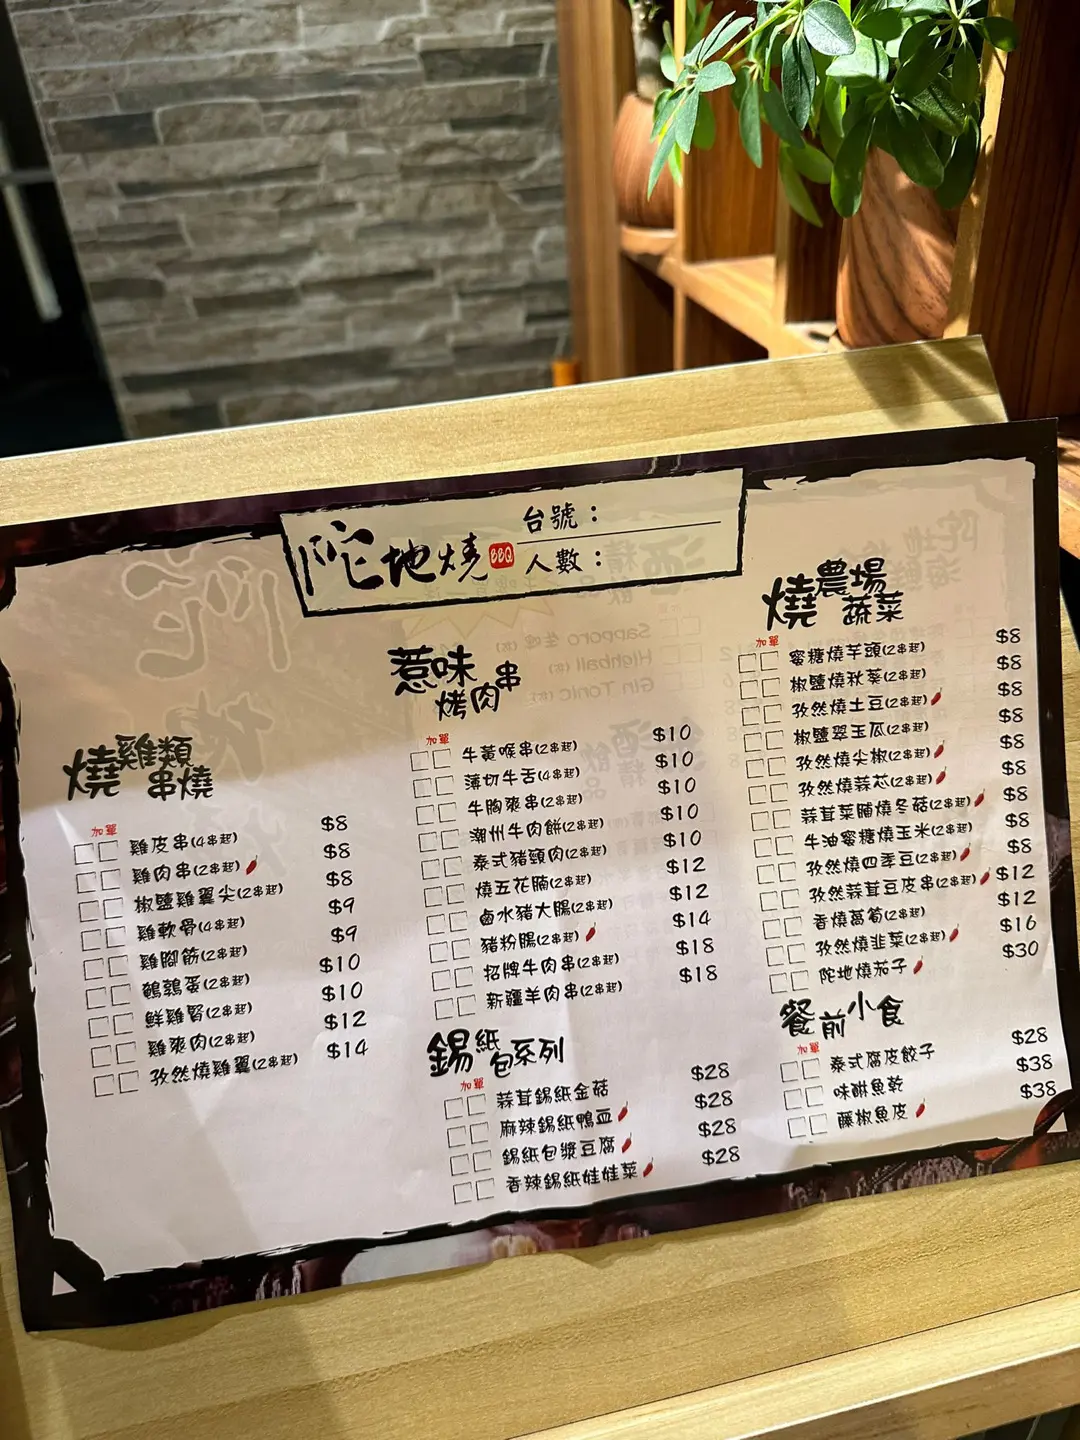 陀地燒 BBQ
台號：
人數：
燒雞類串燒
加單
雞皮串(4串起) $8
雞肉串(2串起) $8
椒鹽雞翼尖(2串起) $8
雞軟骨(4串起) $9
雞腳筋(2串起) $9
鵪鶉蛋(2串起) $10
鮮雞腎(2串起) $10
雞爽肉(2串起) $12
孜然燒雞翼(2串起) $14
惹味烤肉串
加單
牛黃喉串(2串起) $10
薄切牛舌(4串起) $10
牛胸爽串(2串起) $10
潮州牛肉餅(2串起) $10
泰式豬頸肉(2串起) $10
燒五花腩(2串起) $12
鹵水豬大腸(2串起) $12
豬粉腸(2串起) $14
招牌牛肉串(2串起) $18
新疆羊肉串(2串起) $18
錫紙包系列
加單
蒜茸錫紙金菇 $28
麻辣錫紙鴨血 $28
錫紙包漿豆腐 $28
香辣錫紙娃娃菜 $28
燒農場蔬菜
加單
蜜糖燒芋頭(2串起) $8
椒鹽燒秋葵(2串起) $8
孜然燒土豆(2串起) $8
椒鹽翠玉瓜(2串起) $8
孜然燒尖椒(2串起) $8
孜然燒蒜芯(2串起) $8
蒜茸菜脯燒冬菇(2串起) $8
牛油蜜糖燒玉米(2串起) $8
孜然燒四季豆(2串起) $8
孜然蒜茸豆皮串(2串起) $12
香燒萵筍(2串起) $12
孜然燒韭菜(2串起) $16
陀地燒茄子 $30
餐前小食
加單
泰式腐皮餃子 $28
味醂魚乾 $38
藤椒魚皮 $38